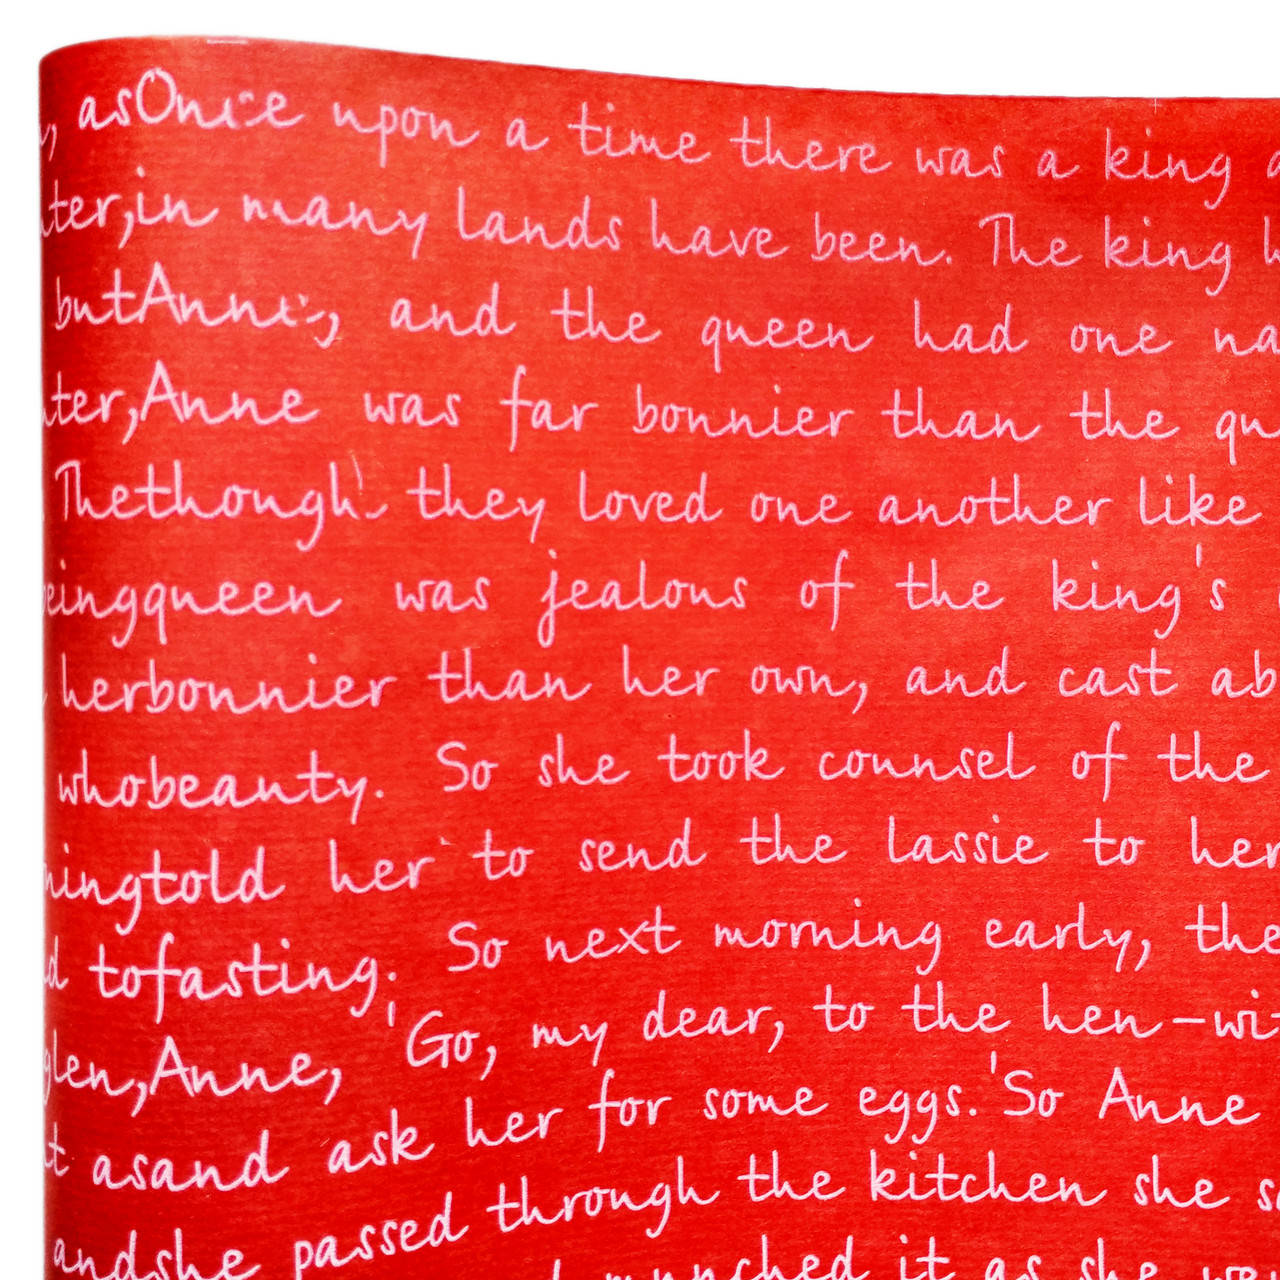 , asOnce upon a time there was a king a
ater,in many lands have been. The king h
butAnne, and the queen had one na
ater,Anne was far bonnier than the qu
Thethough they loved one another like
beingqueen was jealous of the king's
herbonnier than her own, and cast ab
whobeauty. So she took counsel of the
ningtold her to send the lassie to her
d tofasting. So next morning early, the
glen,Anne, 'Go, my dear, to the hen-wi
it asand ask her for some eggs.'So Anne
andshe passed through the kitchen she s
munched it as she